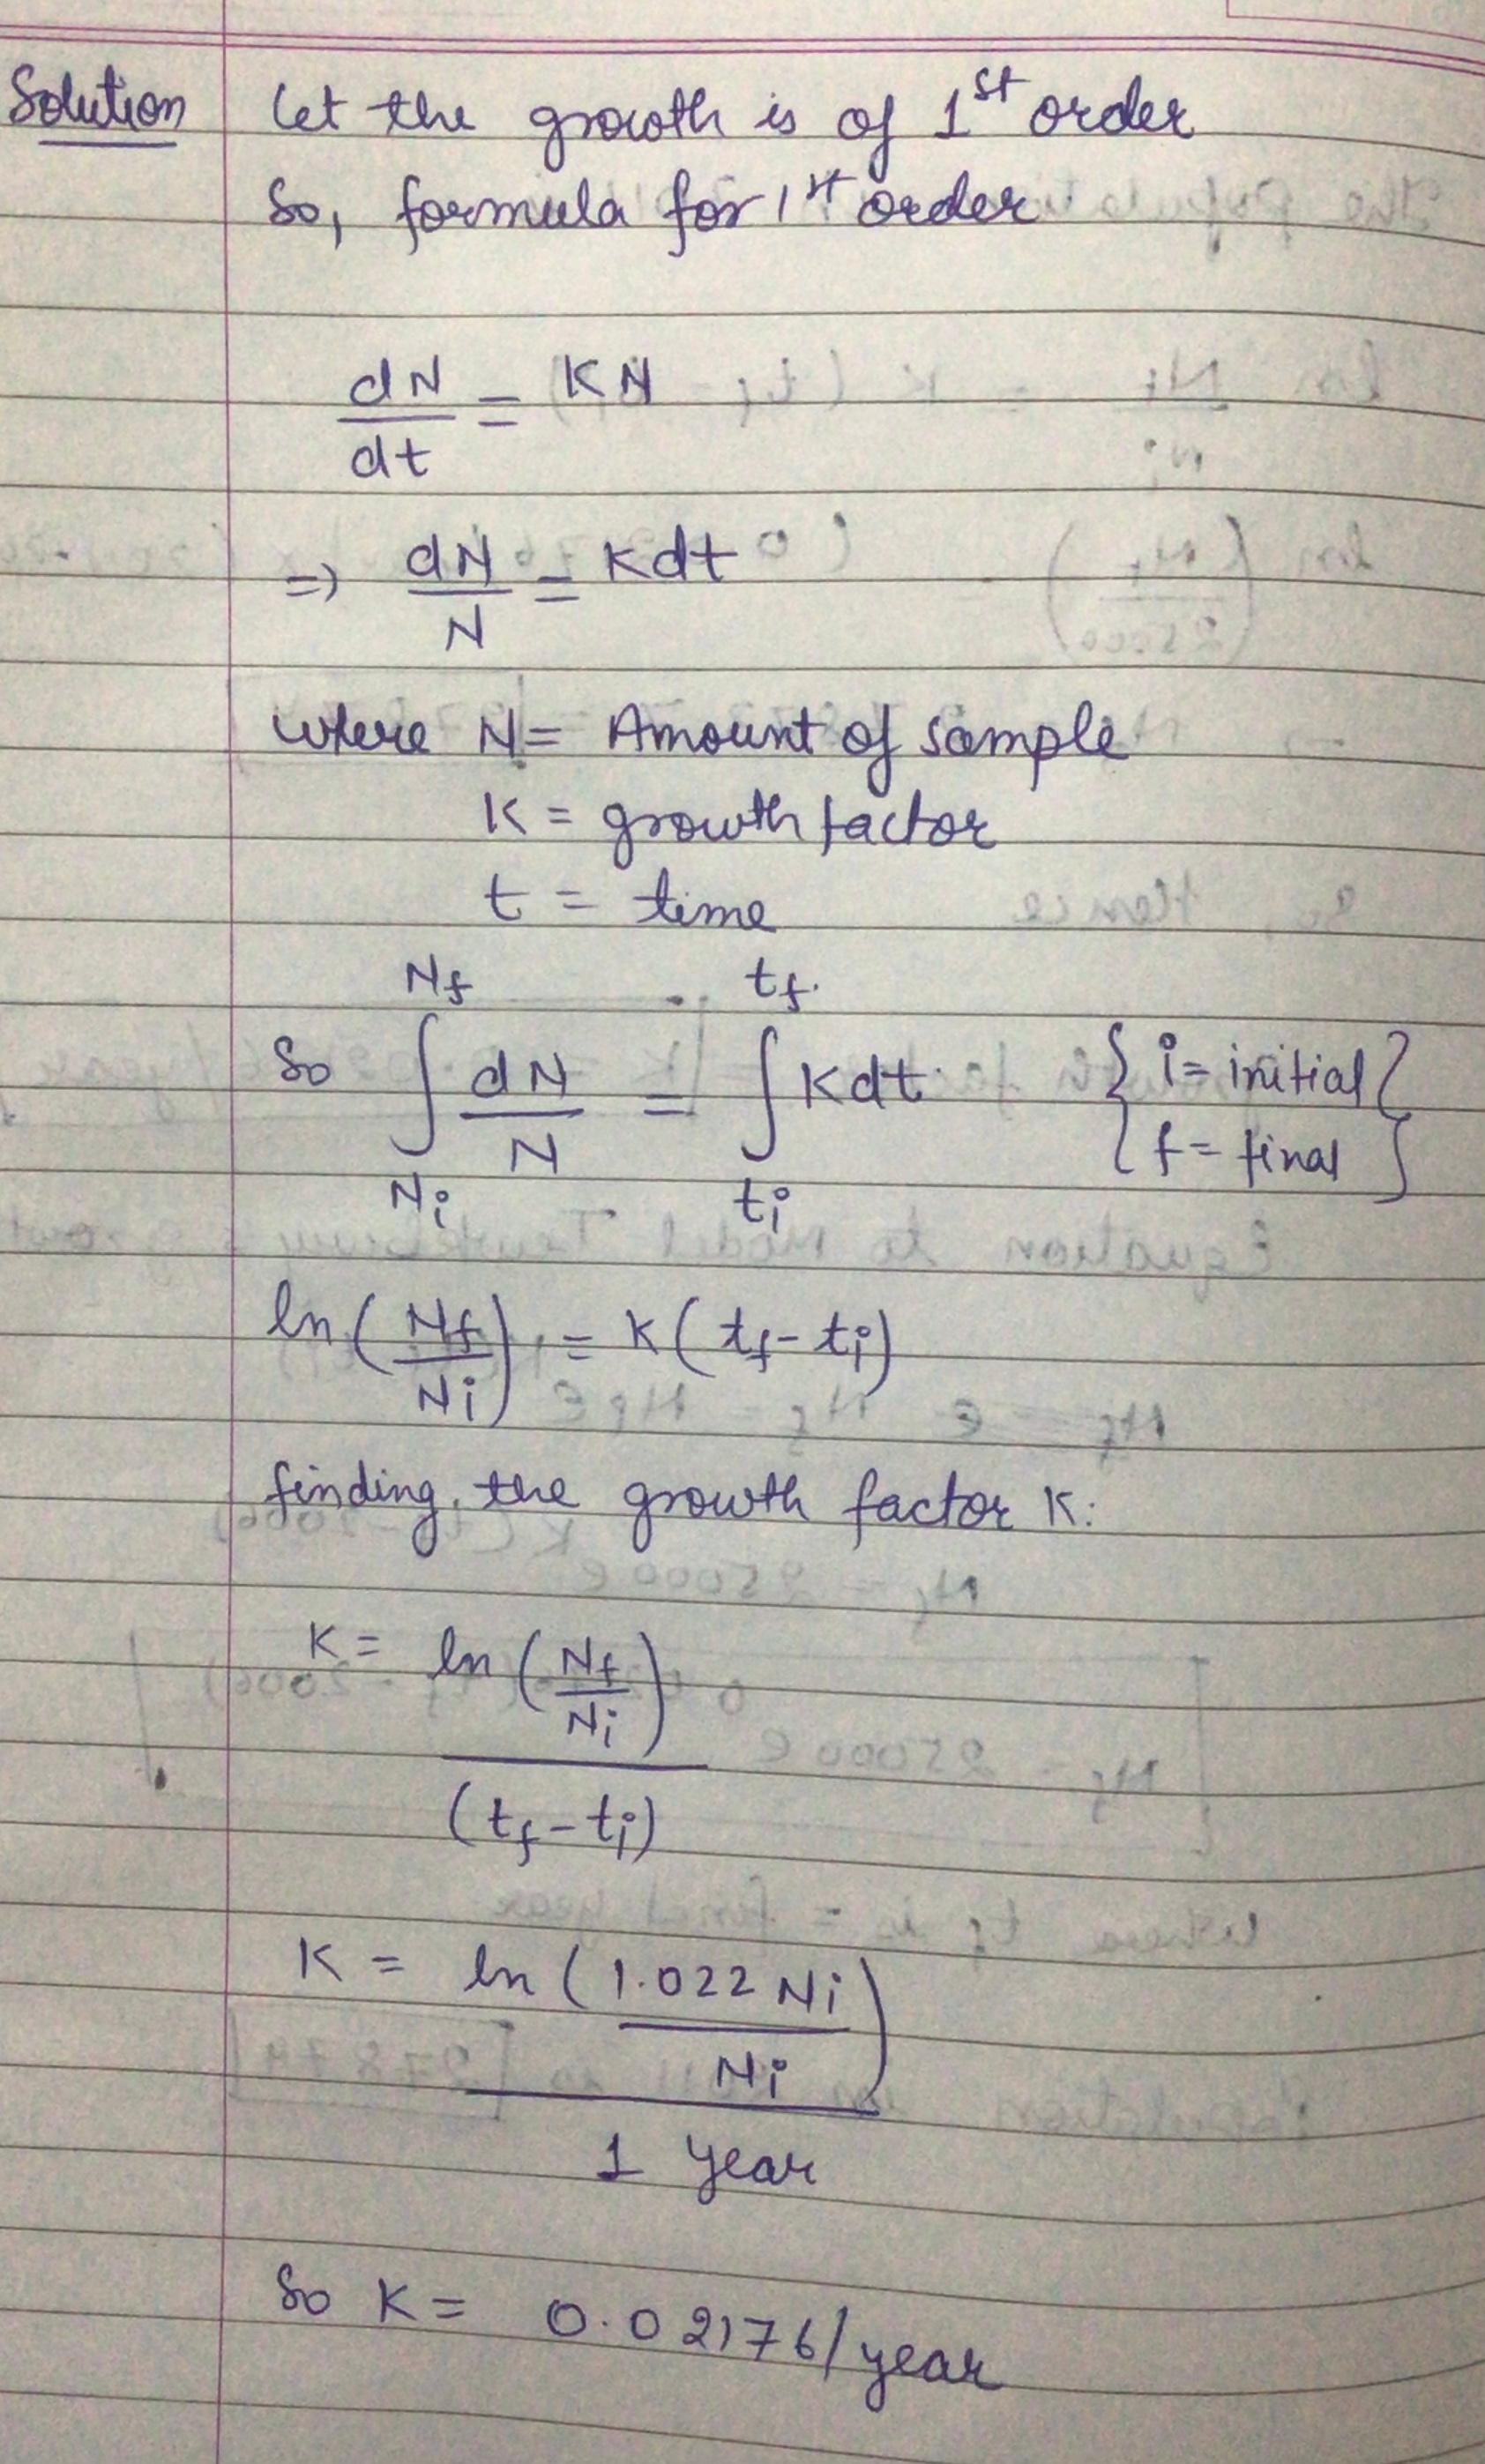 Solution
Let the growth is of 1st order
So, formula for 1st order
dN/dt = KN
=> dN/N = Kdt
where N = Amount of sample
K = growth factor
t = time
So ∫_{Ni}^{Nf} dN/N = ∫_{ti}^{tf} Kdt { i = initial
f = final }
ln (Nf/Ni) = K (tf - ti)
finding the growth factor K:
K = ln (Nf/Ni) / (tf - ti)
K = ln (1.022 Ni / Ni) / 1 year
So K = 0.02176/year